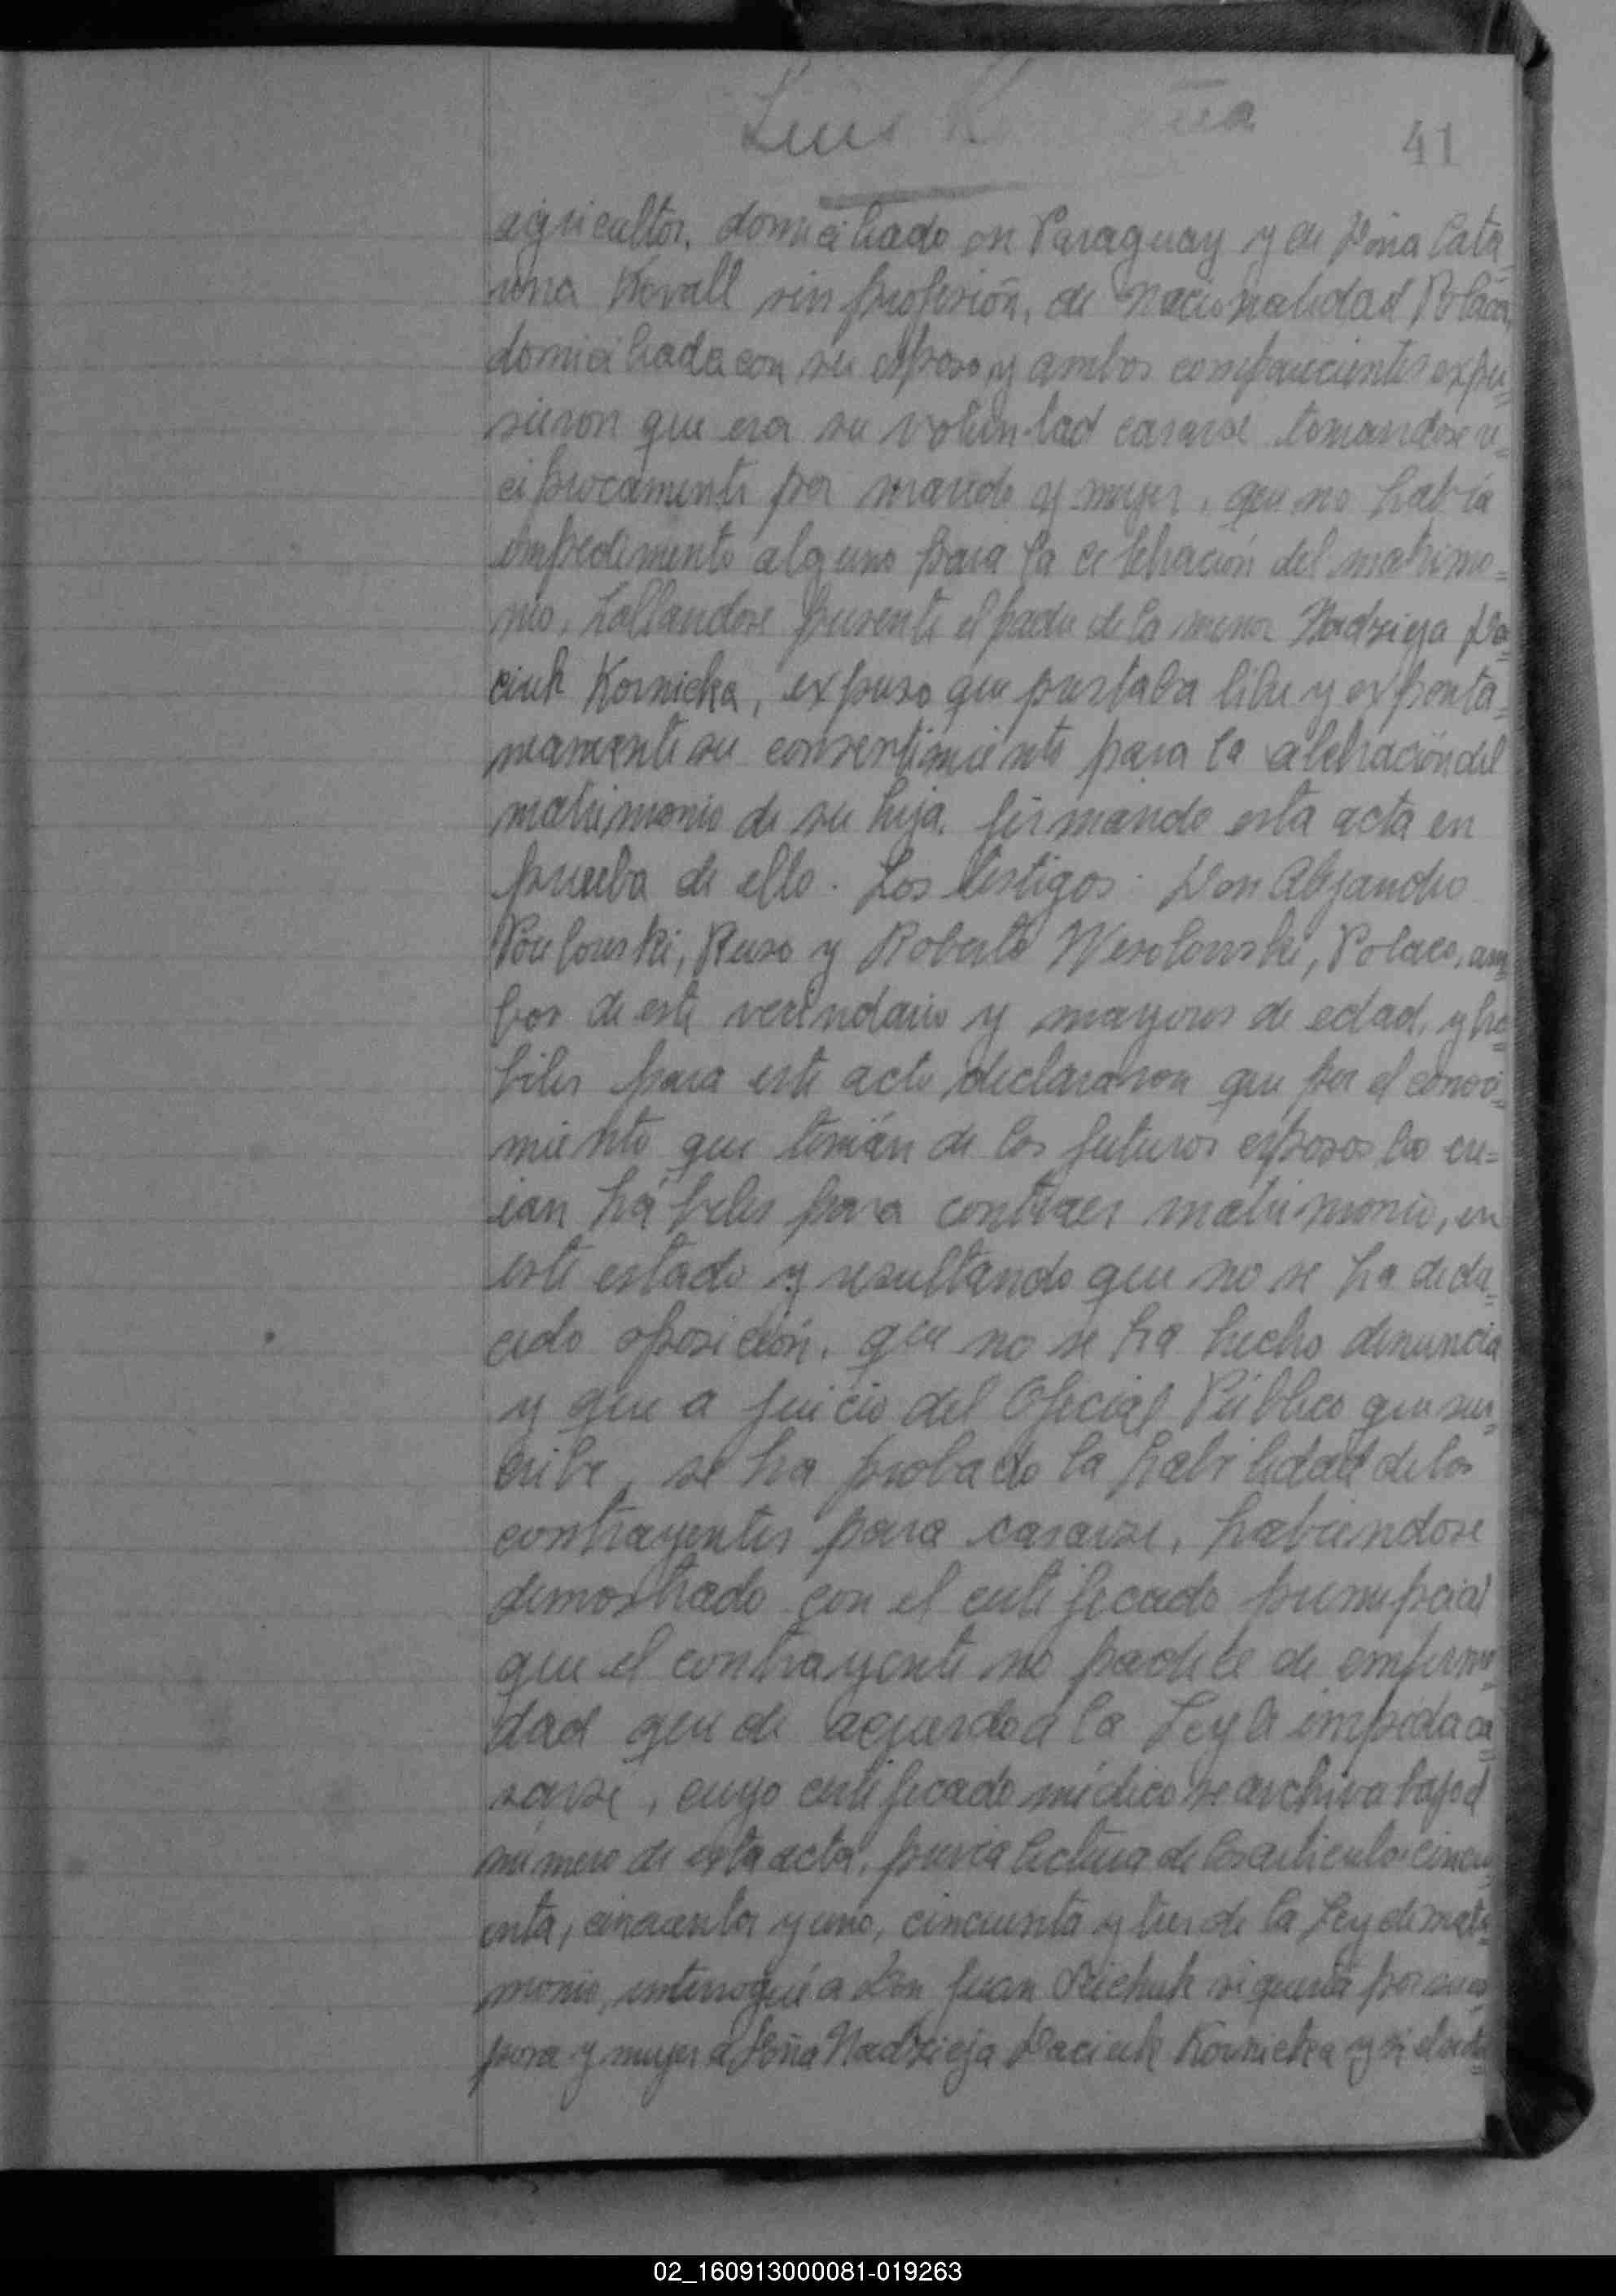 Luis
41
agricultor, domiciliado en Paraguay y de Doña Cata=
rina Kovall sin profesión, de nacionalidad Polaca,
domiciliada con su esposo y ambos comparecientes expu=
sieron que era su voluntad casarse tomandose re=
ciprocamente por marido y mujer, que no había
impedimento alguno para la celebración del matrimo=
nio, hallandose presente el padre de la menor Nadzieja Da=
ciuk Kornicka, expuso que prestaba libre y exponta=
neamente su consentimiento para la celebración del
matrimonio de su hija, firmando esta acta en
prueba de ello. Los testigos: Don Alejandro
Ruso y Roberto Wesolouski, Polaco, am=
bos de este vecindario y mayores de edad, y há=
biles para este acto declararon que por el conoci=
miento que tenían de los futuros esposos los cre=
ian hábiles para contraer matrimonio, en
este estado y resultando que no se ha dedu=
cido oposición, que no se ha hecho denuncia
y que a juicio del Oficial Público que sus=
cribe, se ha probado la habilidad de los
contrayentes para casarse, habiendose
demostrado con el certificado prenupcial
que el contrayente no padece de enferme=
dad que de acuerdo a la Ley le impida ca=
sarse, cuyo certificado médico se archiva bajo el
número de esta acta, previa lectura de los articulos cincu=
enta, cincuenta y uno, cincuenta y tres de la Ley de matri=
monio, interrogué a Don Juan si quería por su es=
posa y mujer a Doña Nadzieja Daciuk Kornicka y si